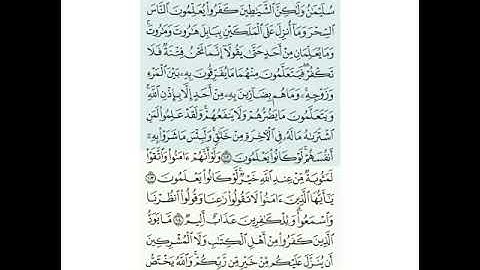 سُلَيْمَٰنُ وَلَٰكِنَّ ٱلشَّيَٰطِينَ كَفَرُوا۟ يُعَلِّمُونَ ٱلنَّاسَ
ٱلسِّحْرَ وَمَآ أُنزِلَ عَلَى ٱلْمَلَكَيْنِ بِبَابِلَ هَٰرُوتَ وَمَٰرُوتَ ۚ
وَمَا يُعَلِّمَانِ مِنْ أَحَدٍ حَتَّىٰ يَقُولَآ إِنَّمَا نَحْنُ فِتْنَةٌ فَلَا
تَكْفُرْ ۖ فَيَتَعَلَّمُونَ مِنْهُمَا مَا يُفَرِّقُونَ بِهِۦ بَيْنَ ٱلْمَرْءِ
وَزَوْجِهِۦ ۚ وَمَا هُم بِضَآرِّينَ بِهِۦ مِنْ أَحَدٍ إِلَّا بِإِذْنِ ٱللَّهِ ۚ
وَيَتَعَلَّمُونَ مَا يَضُرُّهُمْ وَلَا يَنفَعُهُمْ ۚ وَلَقَدْ عَلِمُوا۟ لَمَنِ
ٱشْتَرَىٰهُ مَا لَهُۥ فِى ٱلْءَاخِرَةِ مِنْ خَلَٰقٍ ۚ وَلَبِئْسَ مَا شَرَوْا۟ بِهِۦٓ
أَنفُسَهُمْ ۚ لَوْ كَانُوا۟ يَعْلَمُونَ ١٠٢ وَلَوْ أَنَّهُمْ ءَامَنُوا۟ وَٱتَّقَوْا۟
لَمَثُوبَةٌ مِّنْ عِندِ ٱللَّهِ خَيْرٌ ۖ لَّوْ كَانُوا۟ يَعْلَمُونَ ١٠٣
يَٰٓأَيُّهَا ٱلَّذِينَ ءَامَنُوا۟ لَا تَقُولُوا۟ رَٰعِنَا وَقُولُوا۟ ٱنظُرْنَا
وَٱسْمَعُوا۟ ۗ وَلِلْكَٰفِرِينَ عَذَابٌ أَلِيمٌ ١٠٤ مَّا يَوَدُّ
ٱلَّذِينَ كَفَرُوا۟ مِنْ أَهْلِ ٱلْكِتَٰبِ وَلَا ٱلْمُشْرِكِينَ
أَن يُنَزَّلَ عَلَيْكُم مِّنْ خَيْرٍ مِّن رَّبِّكُمْ ۗ وَٱللَّهُ يَخْتَصُّ